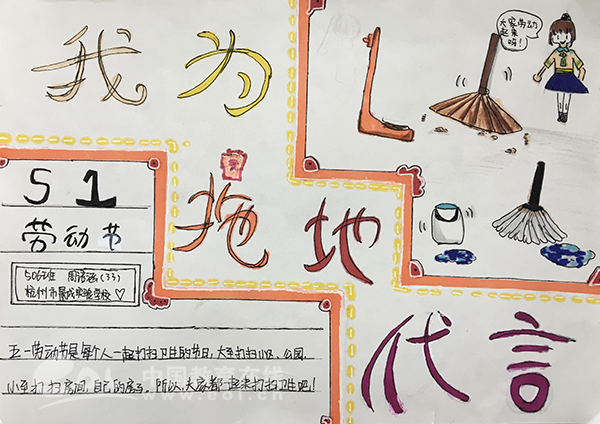 我为
拖地
代言
大家劳动
起来
呀！
51
劳动节
506班 (33)
杭州市景成实验学校♡
五一劳动节是每个人一起打扫卫生的节日,大至打扫小区、公园,
小至打扫房间,自己的房子。所以,大家都一起来打扫卫生吧!
eol 中国教育在线
www.eol.cn